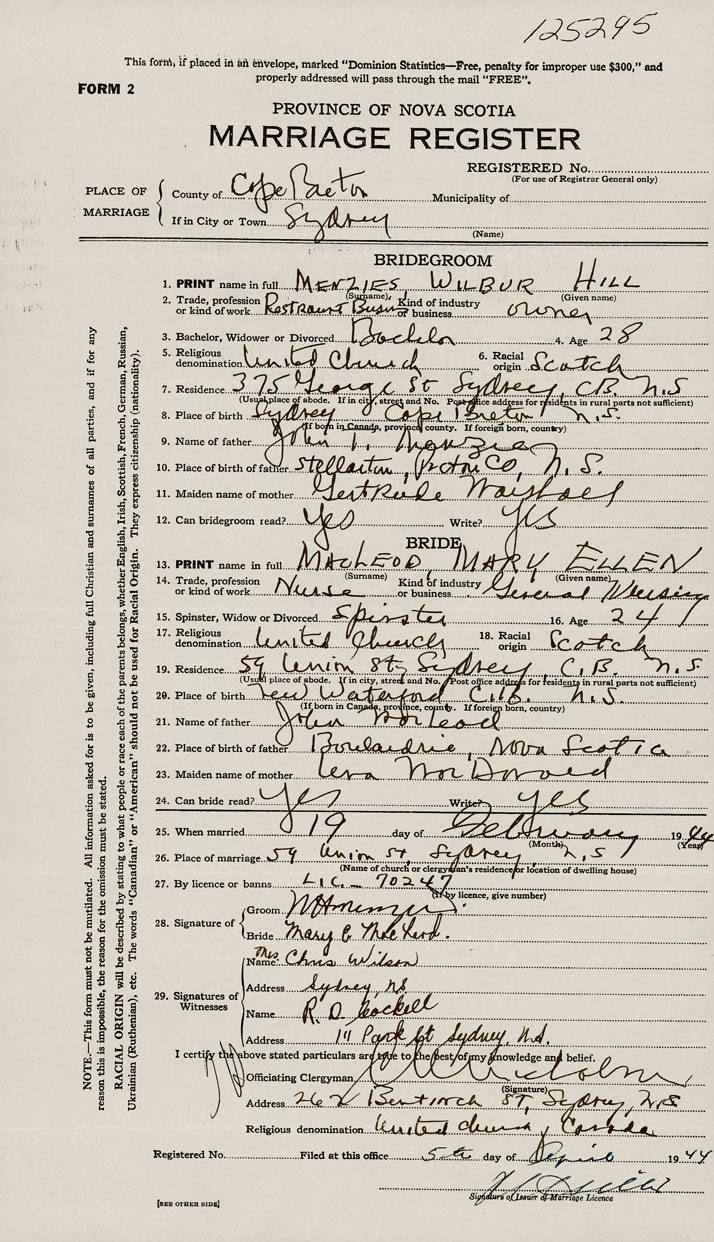 125295
This form, if placed in an envelope, marked “Dominion Statistics—Free, penalty for improper use $300,” and
properly addressed will pass through the mail “FREE”.
FORM 2
PROVINCE OF NOVA SCOTIA
MARRIAGE REGISTER
REGISTERED No.
(For use of Registrar General only)
PLACE OF MARRIAGE
County of Cape Breton Municipality of
If in City or Town Sydney
(Name)
BRIDEGROOM
1. PRINT name in full MENZIES, WILBUR HILL
(Surname) (Given name)
2. Trade, profession or kind of work Restraunt Kind of industry or business owner
3. Bachelor, Widower or Divorced Bachelor 4. Age 28
5. Religious denomination United Church 6. Racial origin Scotch
7. Residence 375 George St Sydney, C.B. N.S
(Usual place of abode. If in city, street and No. Post office address for residents in rural parts not sufficient)
8. Place of birth Sydney Cape Breton N.S.
(If born in Canada, province, county. If foreign born, country)
9. Name of father John Menzies
10. Place of birth of father Stellarton, Pictou Co, N.S.
11. Maiden name of mother Gertrude
12. Can bridegroom read? Yes Write? Yes
BRIDE
13. PRINT name in full MACLEOD, MARY ELLEN
(Surname) (Given name)
14. Trade, profession or kind of work Nurse Kind of industry or business General Nursing
15. Spinster, Widow or Divorced Spinster 16. Age 24
17. Religious denomination United Church 18. Racial origin Scotch
19. Residence 59 Union St, Sydney, C.B. N.S
(Usual place of abode. If in city, street and No. Post office address for residents in rural parts not sufficient)
20. Place of birth New Waterford C.B. N.S.
(If born in Canada, province, county. If foreign born, country)
21. Name of father John MacLeod
22. Place of birth of father Boulardrie, Nova Scotia
23. Maiden name of mother MacDonald
24. Can bride read? Yes Write? Yes
25. When married 19 day of February 1944
(Month) (Year)
26. Place of marriage 59 Union St, Sydney, N.S
(Name of church or clergyman's residence or location of dwelling house)
27. By licence or banns LIC. — 70247
(If by licence, give number)
28. Signature of
Groom WHMenzies.
Bride Mary E MacLeod.
29. Signatures of Witnesses
Name Mrs Chris Wilson
Address Sydney NS
Name R. D.
Address Park St Sydney, N.S.
I certify the above stated particulars are true to the best of my knowledge and belief.
Officiating Clergyman
(Signature)
Address 262 St, Sydney, N.S
Religious denomination United Church, Canada
Registered No. Filed at this office 5th day of April 1944
Signature of Issuer of Marriage Licence
[SEE OTHER SIDE]
NOTE.—This form must not be mutilated. All information asked for is to be given, including full Christian and surnames of all parties, and if for any
reason this is impossible, the reason for the omission must be stated.
RACIAL ORIGIN will be described by stating to what people or race each of the parents belongs, whether English, Irish, Scottish, French, German, Russian,
Ukrainian (Ruthenian), etc. The words “Canadian” or “American” should not be used for Racial Origin. They express citizenship (nationality).